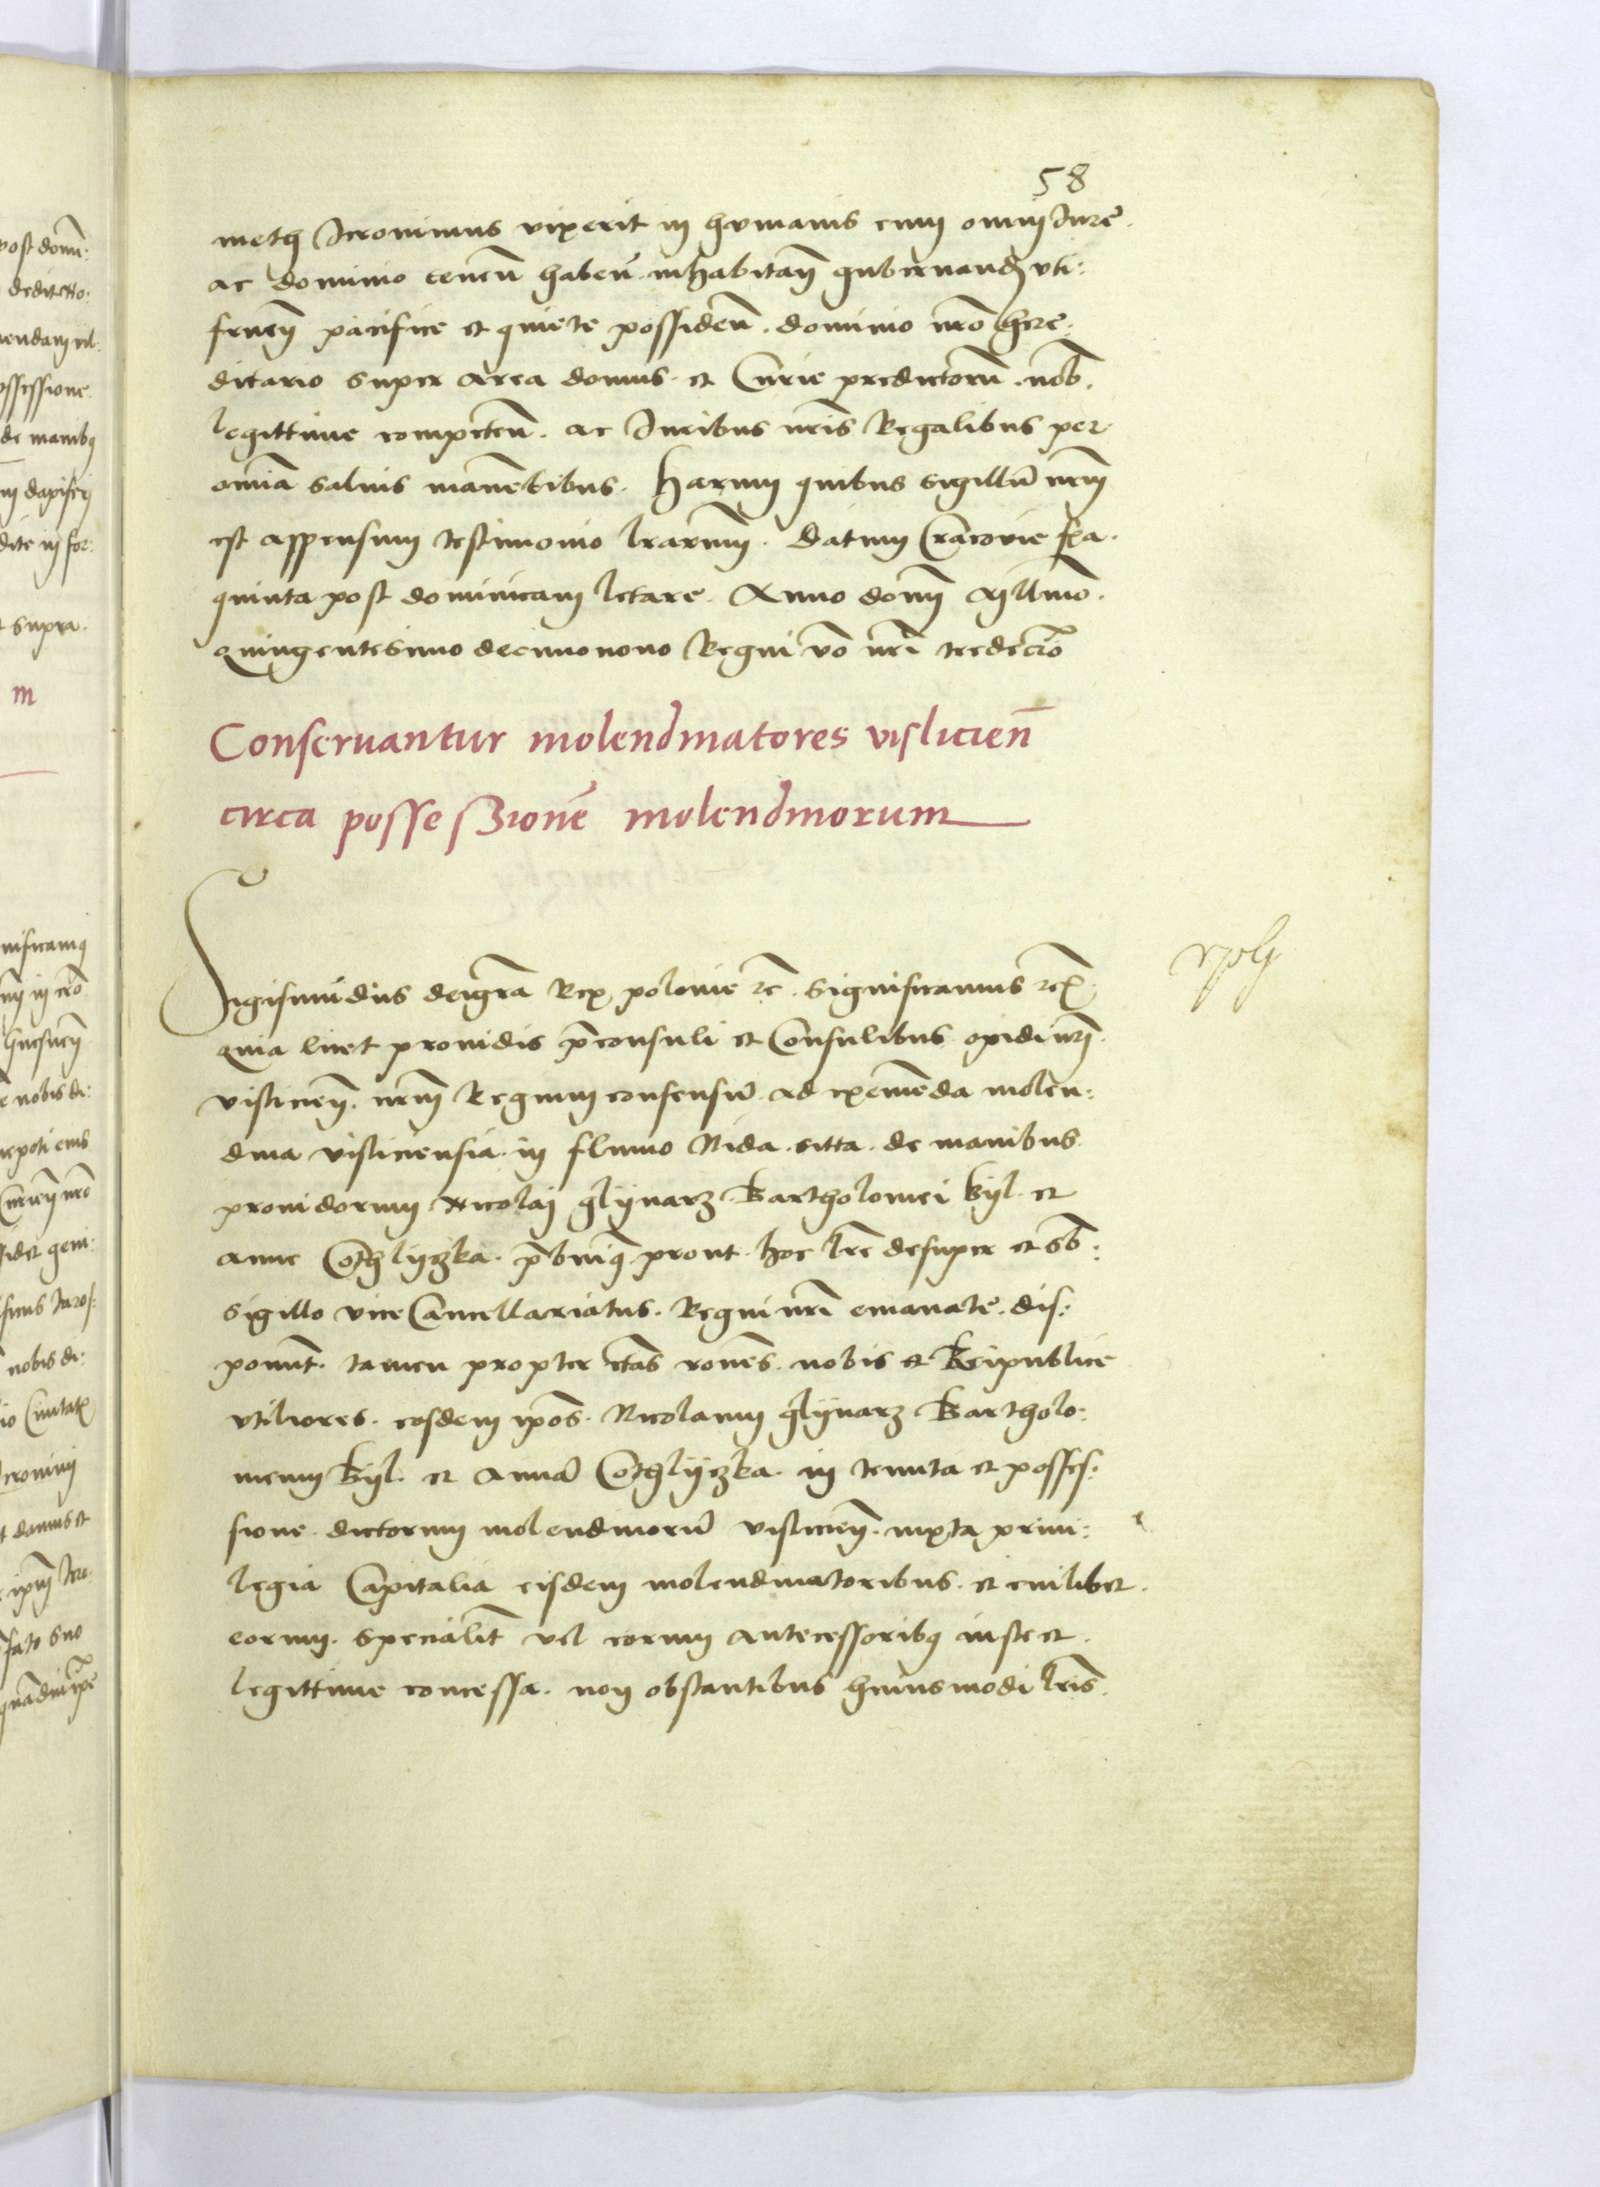 58
meth Jeronimus vixerit in humanis cum omni Jure.
ac dominio tenen̄ haben̄ inhabitan̄ gubernand uti:
fruen̄ pacifice et quiete possiden̄. dominio nr̄o here:
ditario super area domus et Curie predictorū. nob̄.
legittime competen̄. ac Juribus nr̄is Regalibus per
om̄ia salvis manēbibus. Harum quibus sigillū nr̄m
est appensum testimonio lr̄arum. Datum Cracovie fr̄a.
quinta post dominicam letare. Anno domī Millmō.
quingentesimo decimonono Regni vō nr̄i tredecīo
Conseruantur molendinatores vislicien̄
circa possessionē molendinorum
Sigismūdus dei gr̄a Rex polonie rc̄. significamus rc̄
quia licet providis p̄consuli et Consulibus opidi nr̄i
visticien̄. nr̄m Regium consensū ad exemēda molen:
dina visticiensia in fluvio Nida sitta de manibus
providorum Nicolai glynarz Bartholomei kyl et
anne Cothlyczka prout hoc lr̄e desuper et sb̄:
sigillo vice Cancellariatus. Regni nr̄i emanatē. dis:
ponunt tamen propter cr̄tas rōnes. nobis et Reipublice
utiliores. eosdem ipōs. Nicolaum glynarz Bartholo:
meum kyl. et annā Cothlyczka in tenuta et posses:
sione dictorum molendinorū visticien̄. iuxta privi:
legia Capitalia eisdem molendinatoribus et cuilibet.
eorum. specialit̄ vel eorum antecessoribus iuste et.
legittime concessa. non obstantibus huiusmodi lr̄is.